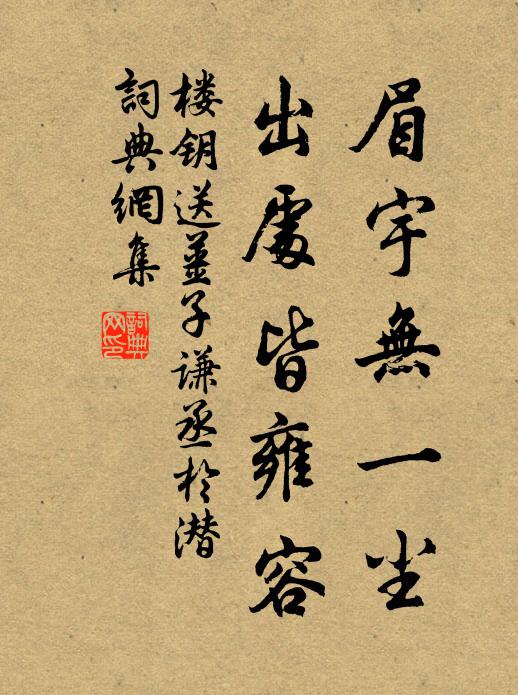 眉宇無一尘
出處皆雍容
楼钥送姜子谦丞於潜
詞典網集
詞典网印